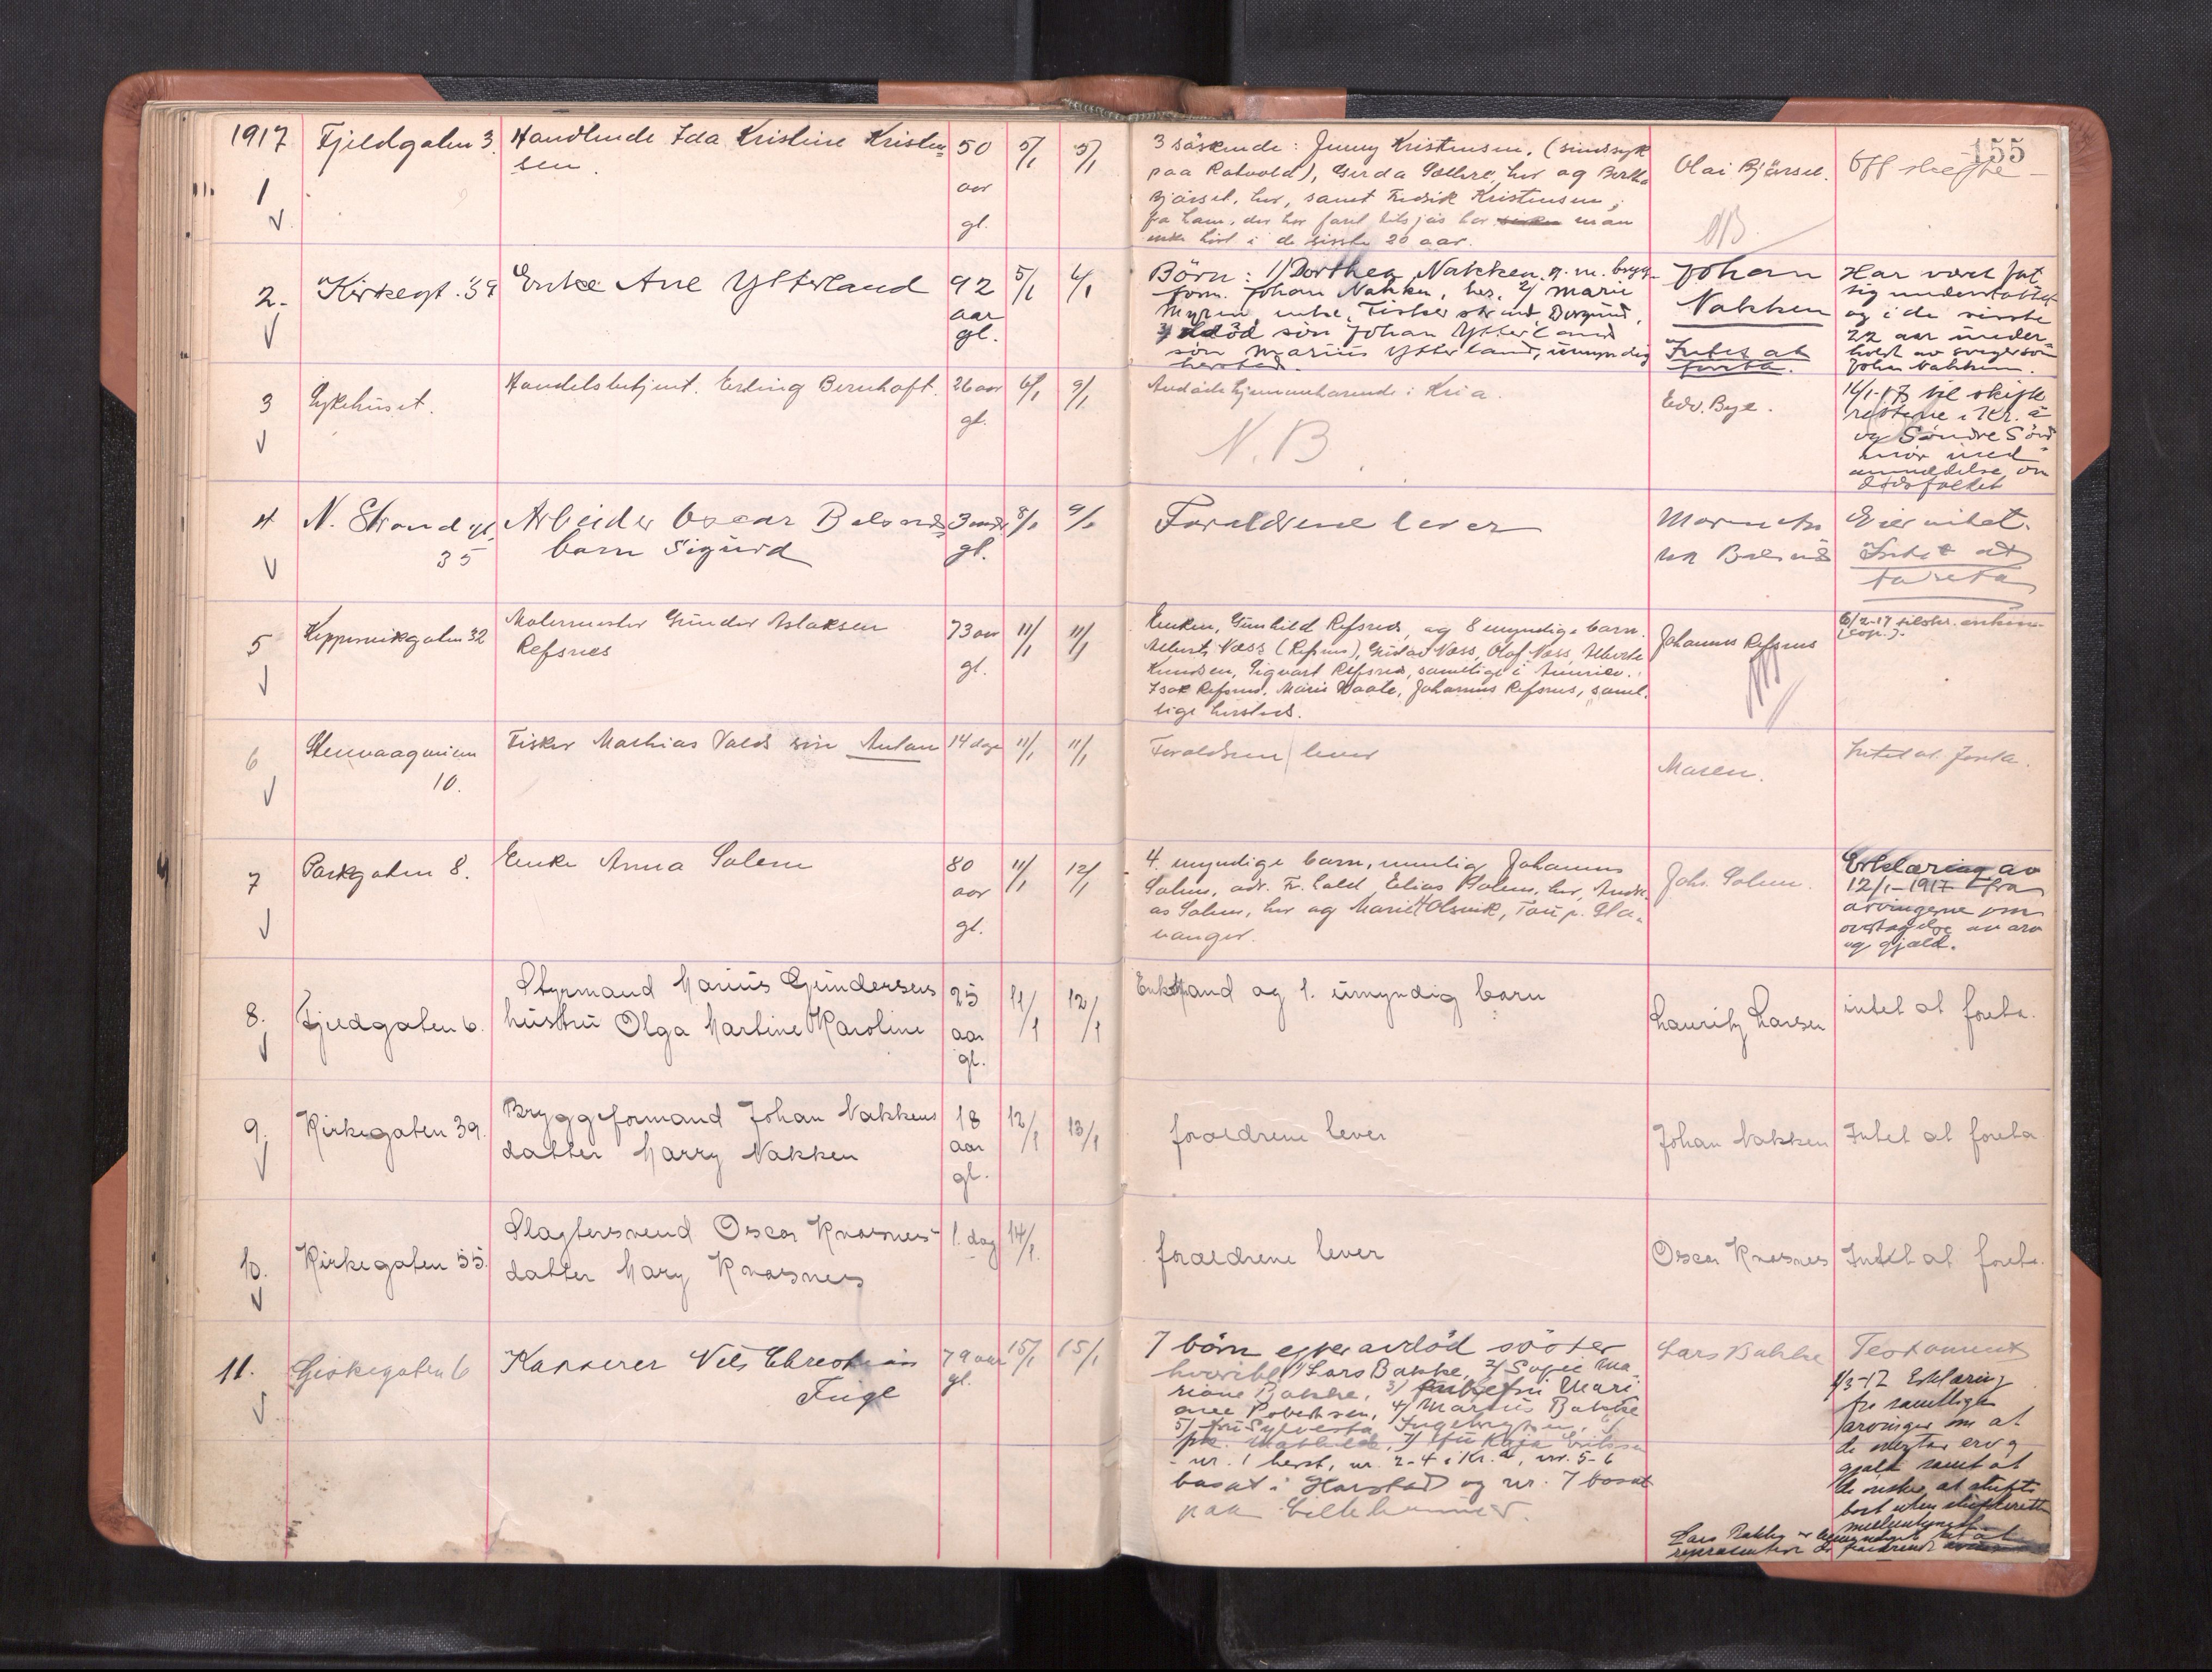 155
1917
1
Fjeldgaten 3.
Handlende Ida Kristine Kristen=
sen.
50
aar
gl.
5/1
5/1
3 söskende: Jenny Kristensen, (sinssyk
paa Rotvold), Gerda her og Bertha
Björset, her, samt Fredrik Kristensen,
fra ham, der har faret tilsjös har man
ikke hört i de sisste 20 aar.
Olai Björset.
NB.
Off skifte
2.
Kirkegt. 39
Enke Ane Ytterland
92
aar
gl.
5/1
6/1
Börn: 1/ Dorthea Nakken, g. m. brygg-
form. Johan Nakken, her, 2/ Marie
Myren, enke, Fiskerstrand, Borgund,
3/ död sön Johan Ytterland
sön Marius Ytterland, umyndig
hersted.
Johan
Nakken
Intet at
foreta.
Har været fat
sig understöttet
og i de sisste
22 aar under=
holdt av svigersön
Johan Nakken.
3
Sykehuset.
Handelsbetjent. Erling Bernhoft.
26 aar
gl.
6/1
9/1
Avdöde hjemmehørende i Kria.
N.B.
Edv. Bye.
16/1-17 til skifte
retterne i Kr.a
og Söndre Sönd
mör med
anmeldelse om
dödsfaldet
4
N. Strandgt.
35
Arbeider Oscar Balsnes
barn Sigurd
3 mdr.
gl.
8/1
9/1
Foreldrene lever
Eier intet.
Intet at
foreta
5
Kippervikgaten 32
Malermester Gunder Aslaksen
Refsnes
73 aar
gl.
11/1
11/1
Enken, Gunhild Refsnes, og 8 myndige barn.
Albert Næss (Refsnes), Gustav Næss, Olaf Næss, Alberte
Knudsen, Sigvart Refsnes, samtlige i Amerika.
Isak Refsnes, Marie Waate, Johannes Refsnes, samt=
lige hersteds.
Johannes Refsnes
NB
6/2-17 tilstr. enken
(kopi.).
6
Stenvaagveien
10.
Fisker Mathias Valds sön Anton
14 dage
11/1
11/1
Foreldrene lever
Maren.
Intet at foreta.
7
Parkgaten 8.
Enke Anna Solem
80
aar
gl.
11/1
12/1
4 myndige barn, nemlig Johannes
Solem, adr. Fr. Cald, Elias Solem, her, Andre=
as Solem, her og Marie Olsvik, Tau p. Sta=
vanger.
Johs. Solem.
Erklæring av
12/1-1917 fra
arvingerne om
overtagelse av arv
og gjæld.
8.
Fjeldgaten 6.
Styrmand Marius Gundersens
hustru Olga Martine Karoline
25
aar
gl.
11/1
12/1
Enkemand og 1. umyndig barn
Lauritz Larsen
intet at foreta.
9.
Kirkegaten 39.
Bryggeformand Johan Nakkens
datter Marry Nakken
18
aar
gl.
12/1
13/1
foreldrene lever
Johan Nakken
Intet at foreta
10.
Kirkegaten 55.
Slagtersvend Oscar Knasnes
datter Mary Knasnes
1. dag
14/1.
foreldrene lever
Oscar Knasnes
Intet at foreta.
11.
Giskegaten 6
Kasserer Nils Christian
Fugl
79 aar
gl.
15/1
15/1
7 börn efter avdöd söster
hvoribl. 1/ Lars Bakke, 2/ Sofie Ma
riane Bakke, 3/ enkefru Mari
ane Robertsen, 4/ Marius Bakke
5/ fru Sylvesta Ingebrigtsen, 6/
frk. Mathilde, 7/ fru Kaja Eriksen
- nr. 1 herst., nr. 2-4 i Kr.a, nr. 5-6
bosat i Harstad og nr. 7 bosat
paa Lillehammer.
Lars Bakke
Testament
1/3-17 Erklæring
fra samtlige
arvinger om at
de vedgtar arv og
gjæld samt at
de önsker at skifte
boet uten skifterettens
mellemkomst.
Lars Bakke er bemyndiget til at
representere de